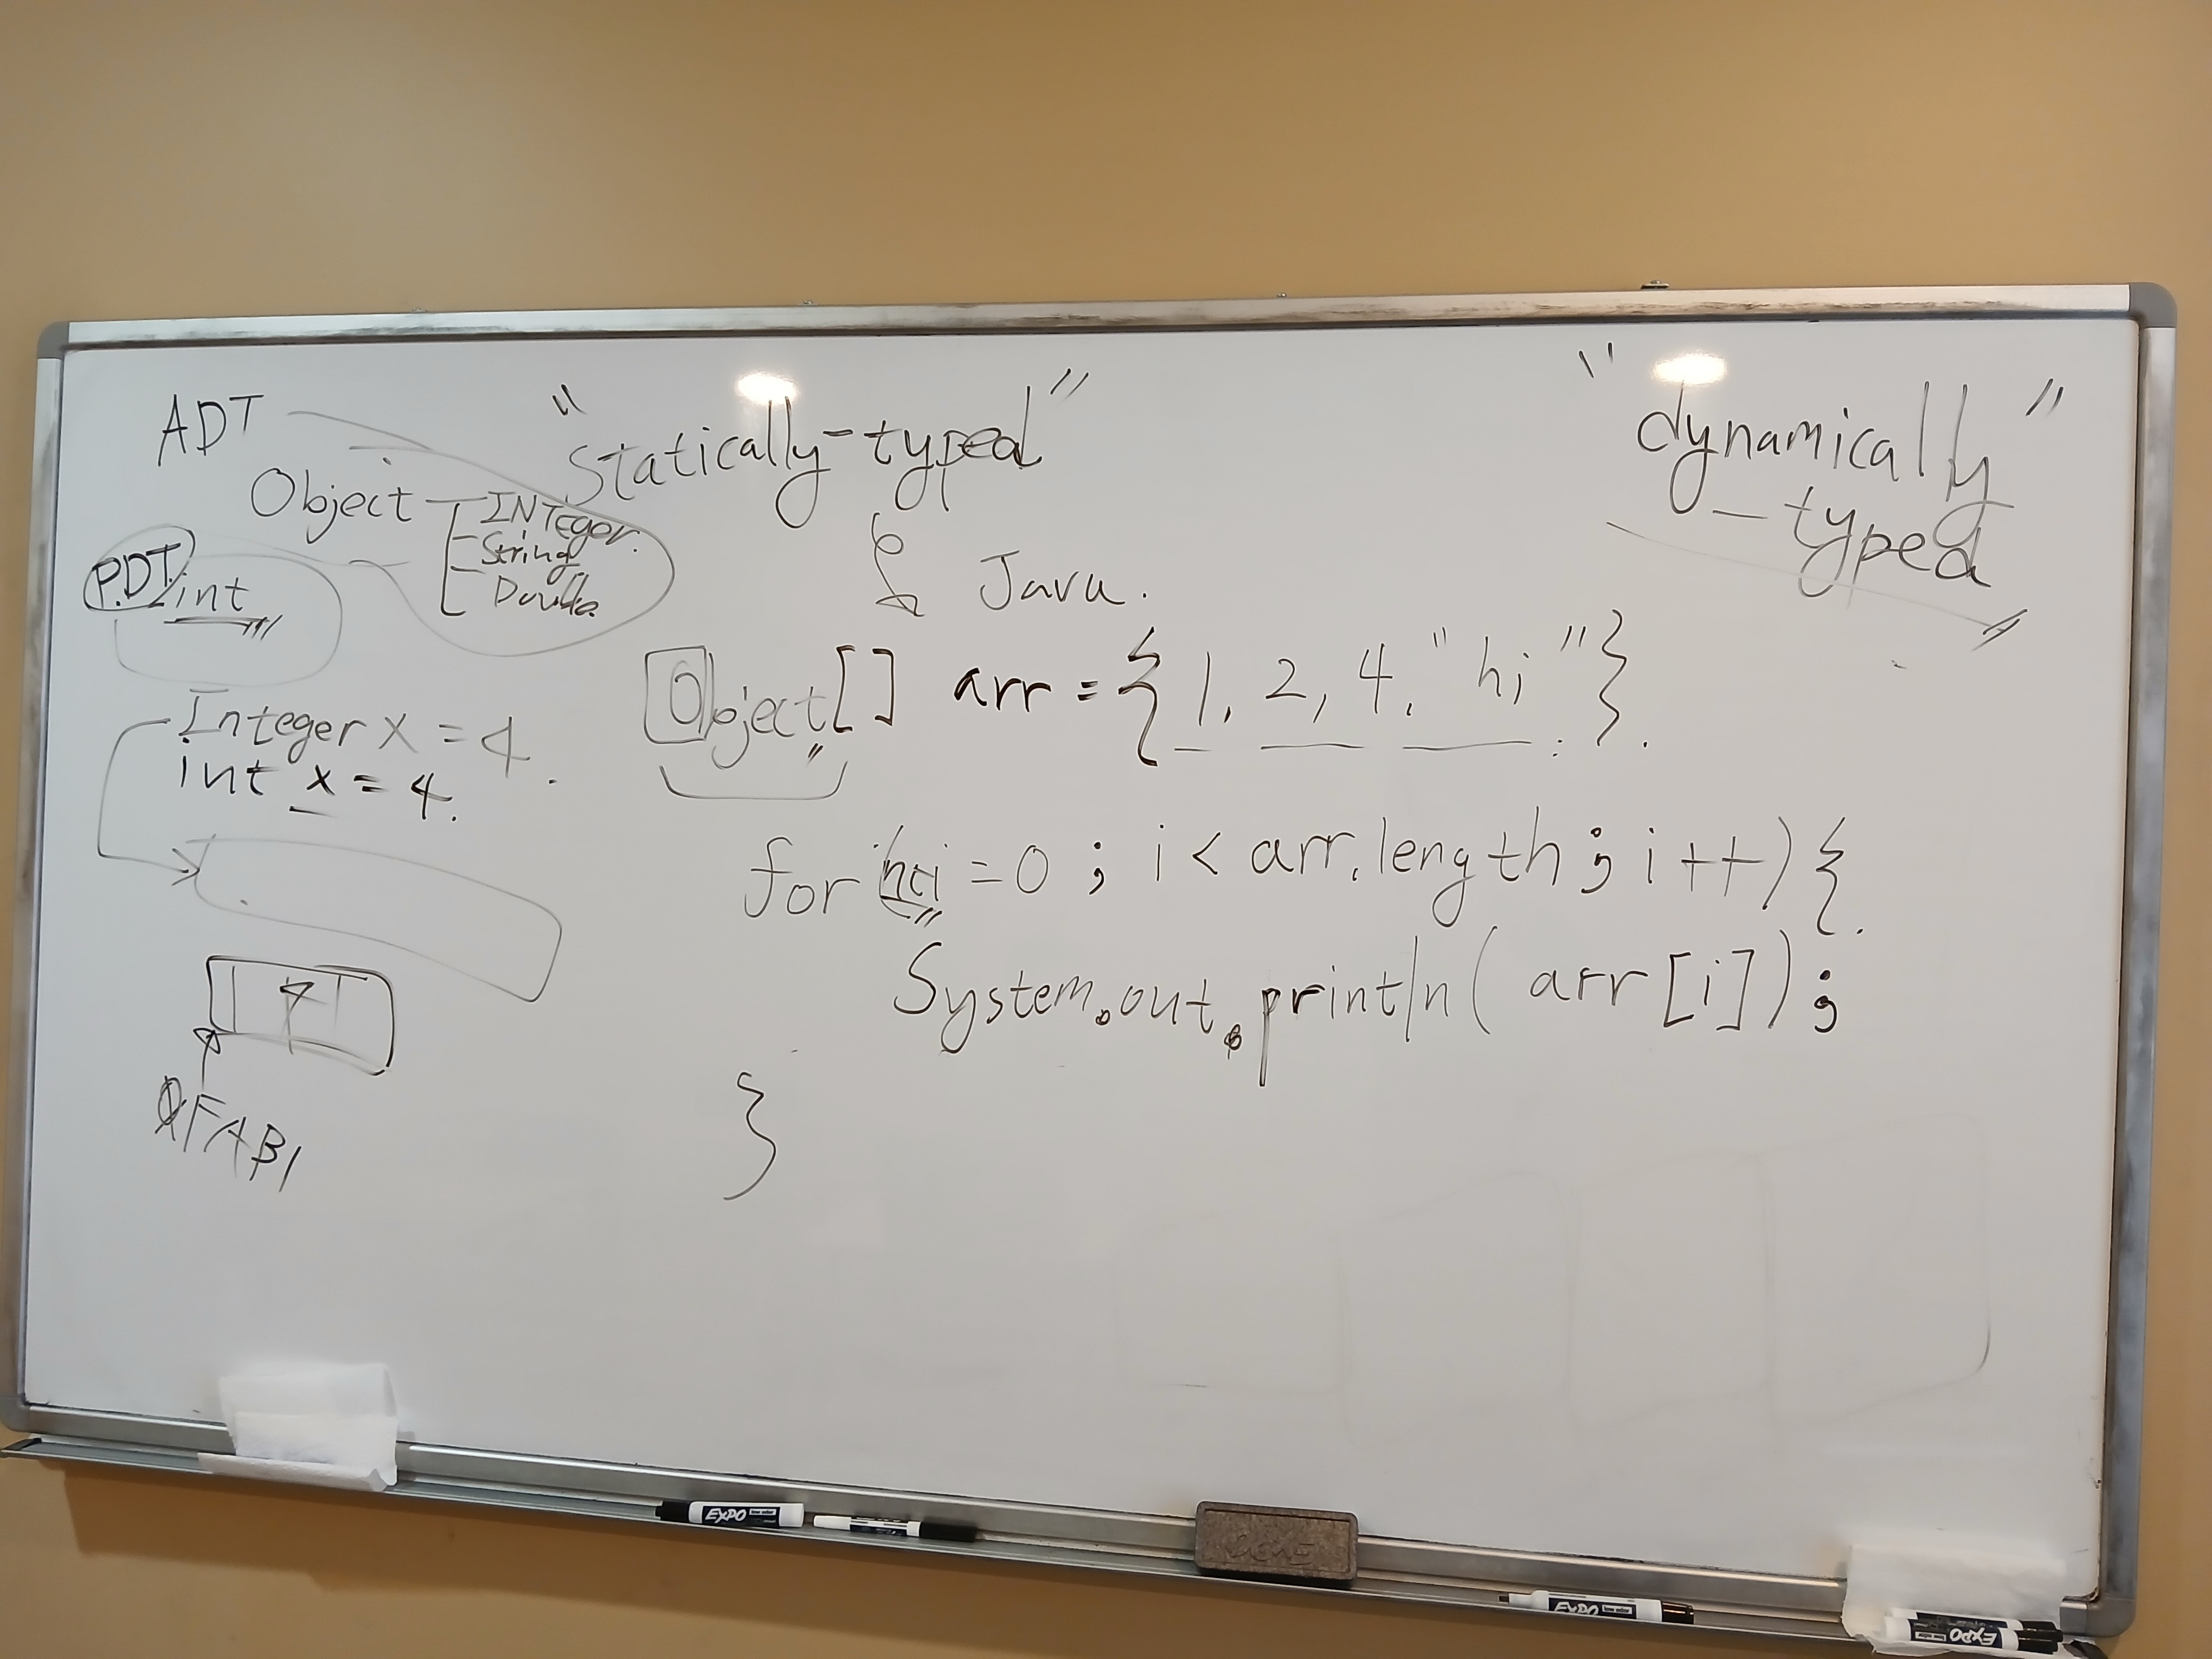 ADT
Object
INTeger.
String
Double.
P.DT
int
Integer X = 4.
int x = 4.
4
"Statically-typed"
Java.
Object[] arr = {1, 2, 4, "hi"}.
for int i = 0 ; i < arr.length ; i ++) {.
System.out.println( arr [i]) ;
}
"dynamically
-typed"
EXPO
EXPO
EXPO